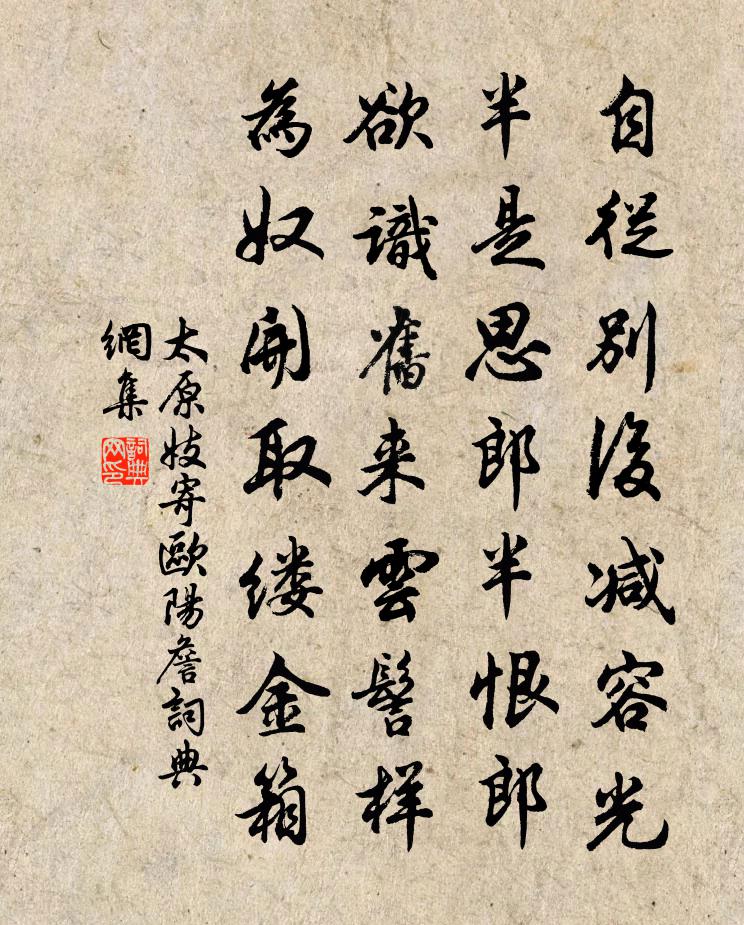 自從別後減容光
半是思郎半恨郎
欲識舊来雲髻樣
為奴開取缕金箱
太原妓寄歐陽詹詞典
網集
詞典
网印